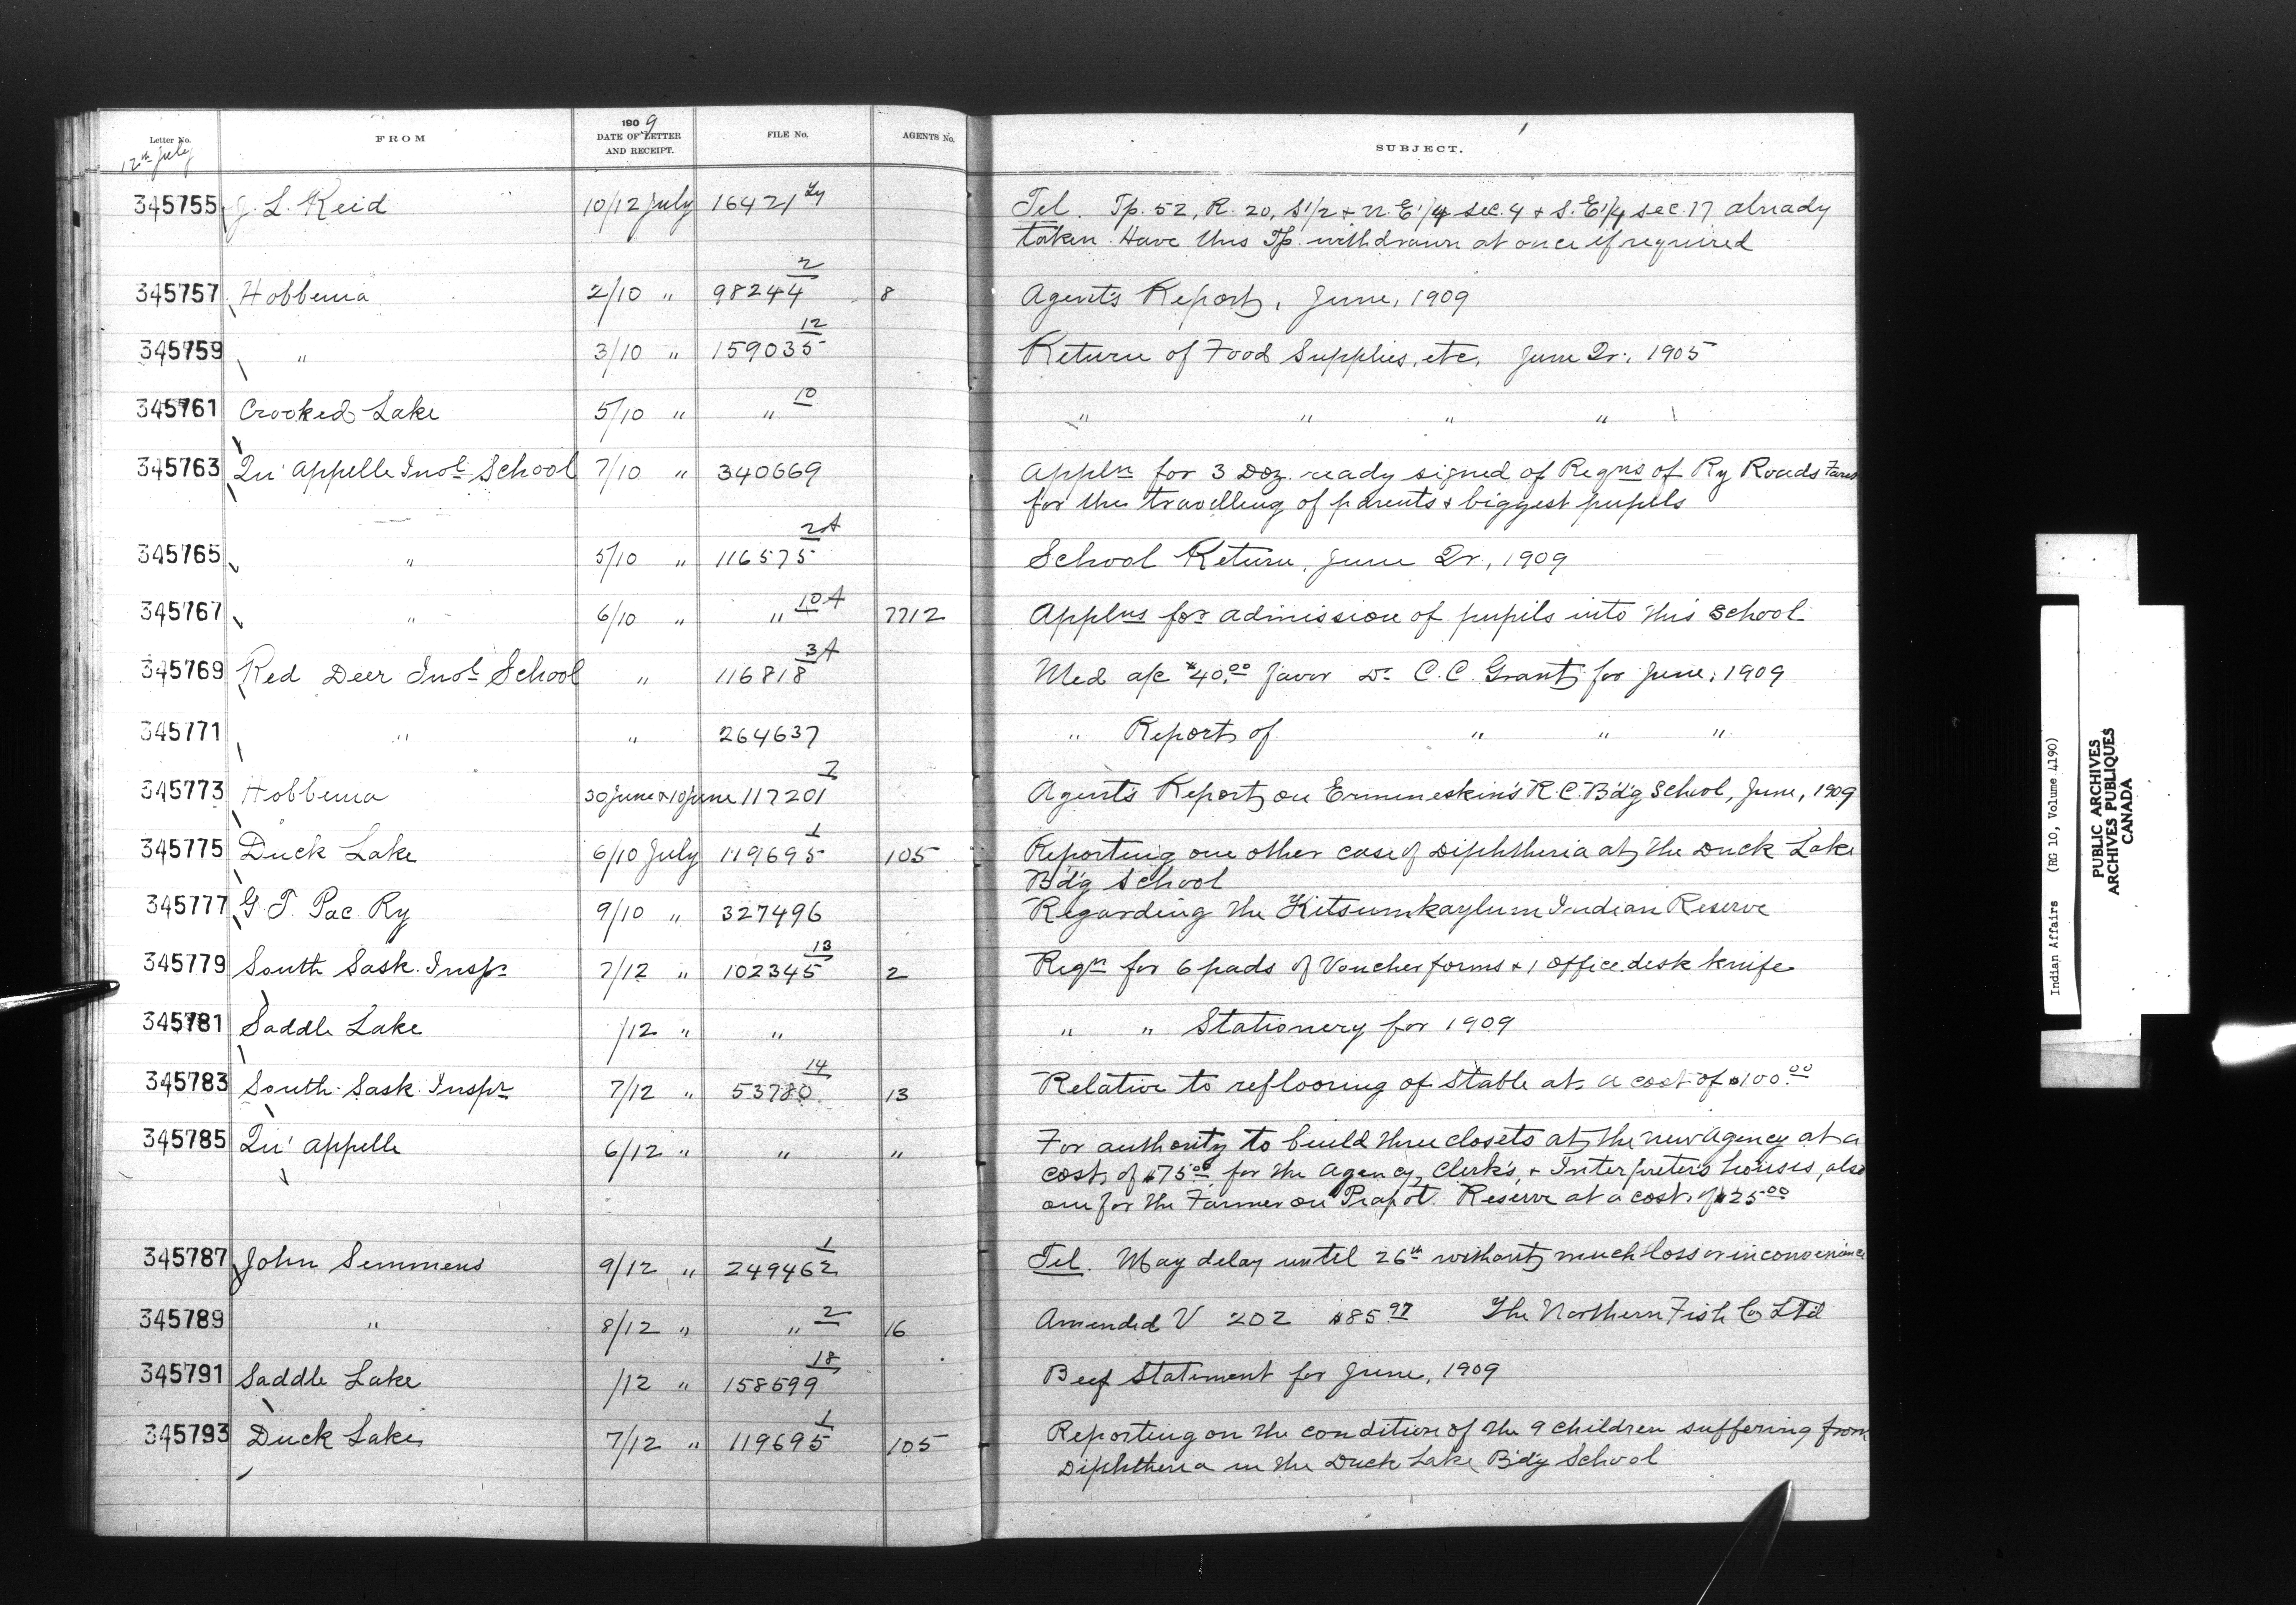 Letter No. FROM 1909 DATE OF LETTER AND RECEIPT. FILE No. AGENTS No. SUBJECT.
12th July
345755 J. L. Reid 10/12 July 16421 Tel. Tp. 52, R. 20, S1/2 + N.E1/4 sec. 4 + S.E1/4 sec. 17 already
taken. Have this Tp. withdrawn at once if required
345757 Hobbema 2/10 " 98244 2 8 Agent's Report, June, 1909
345759 " 3/10 " 159035 12 Return of Food Supplies, etc. June Qr., 1905
345761 Crooked Lake 5/10 " " 10 " " " "
345763 Qu'Appelle Indl School 7/10 " 340669 Appln for 3 Doz. ready signed of Reqns of Ry Roads Fares
for the travelling of parents & biggest pupils
345765 " 5/10 " 116575 2A School Return, June Qr., 1909
345767 " 6/10 " " 10A 7712 Applns for admission of pupils into this School
345769 Red Deer Indl School " 116818 3A Med a/c $40.00 favor Dr C. C. Grant for June, 1909
345771 " " 264637 " Report of " " "
345773 Hobbema 30 June & 10 June 117201 7 Agent's Report on Ermineskin's R.C. Bd'g School, June, 1909
345775 Duck Lake 6/10 July 119695 1 105 Reporting one other case of Diphtheria at the Duck Lake
Bd'g School
345777 G. T. Pac. Ry 9/10 " 327496 Regarding the Kitsumkaylum Indian Reserve
345779 South Sask. Inspr 7/12 " 102345 13 2 Reqn for 6 pads of Voucher forms & 1 office desk knife
345781 Saddle Lake /12 " " " " Stationery for 1909
345783 South Sask. Inspr 7/12 " 53780 14 13 Relative to reflooring of Stable at a cost of $100.00
345785 Qu'Appelle 6/12 " " " For authority to build three closets at the new Agency at a
cost of $75.00 for the Agency, Clerk's, & Interpreter's houses, also
one for the Farmer on Piapot Reserve at a cost of $25.00
345787 John Semmens 9/12 " 249462 1 Tel. May delay until 26th without much loss or inconvenience
345789 " 8/12 " " 2 16 Amended V 202 $85.97 The Northern Fish Co Ltd
345791 Saddle Lake /12 " 158599 18 Beef Statement for June, 1909
345793 Duck Lake 7/12 " 119695 1 105 Reporting on the condition of the 9 children suffering from
Diphtheria in the Duck Lake Bd'g School
Indian Affairs (RG 10, Volume 4190)
PUBLIC ARCHIVES
ARCHIVES PUBLIQUES
CANADA